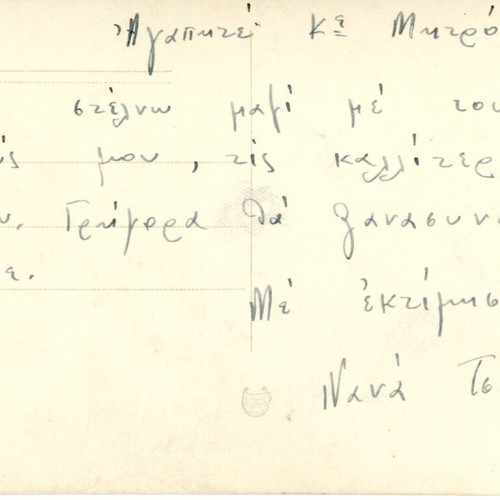 Ἀγαπητέ Κε Μητρό
στέλνω μαζί μέ του
ς μου, τίς καλλίτερ
ν. Γρήγορα θά ξανασυνα
ε.
Μέ ἐκτίμησ
Νανά Τσ